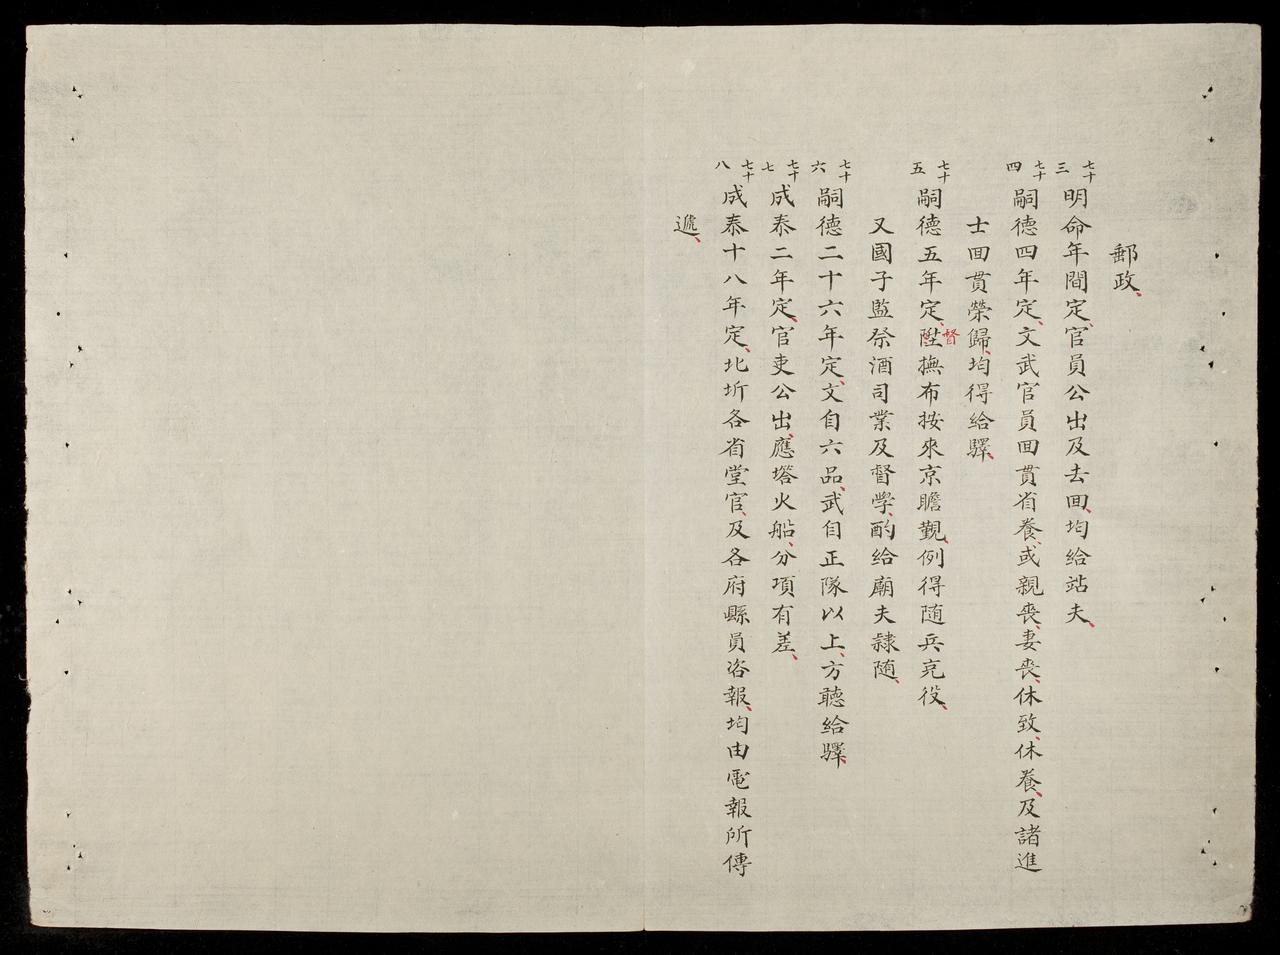 郵政、
七十三 明命年間定、官員公出及去回、均給站夫、
七十四 嗣德四年定、文武官員回貫省養、或親喪、妻喪、休致、休養、及諸進
士回貫榮歸、均得給驛、
七十五 嗣德五年定、陞督撫布按來京瞻覲、例得随兵充役、
又國子監祭酒司業及督學、酌給廟夫隷随、
七十六 嗣德二十六年定、文自六品、武自正隊以上、方聽給驛、
七十七 成泰二年定、官吏公出、應塔火船、分項有差、
七十八 成泰十八年定、北圻各省堂官、及各府縣員咨報、均由電報所傳
遞、